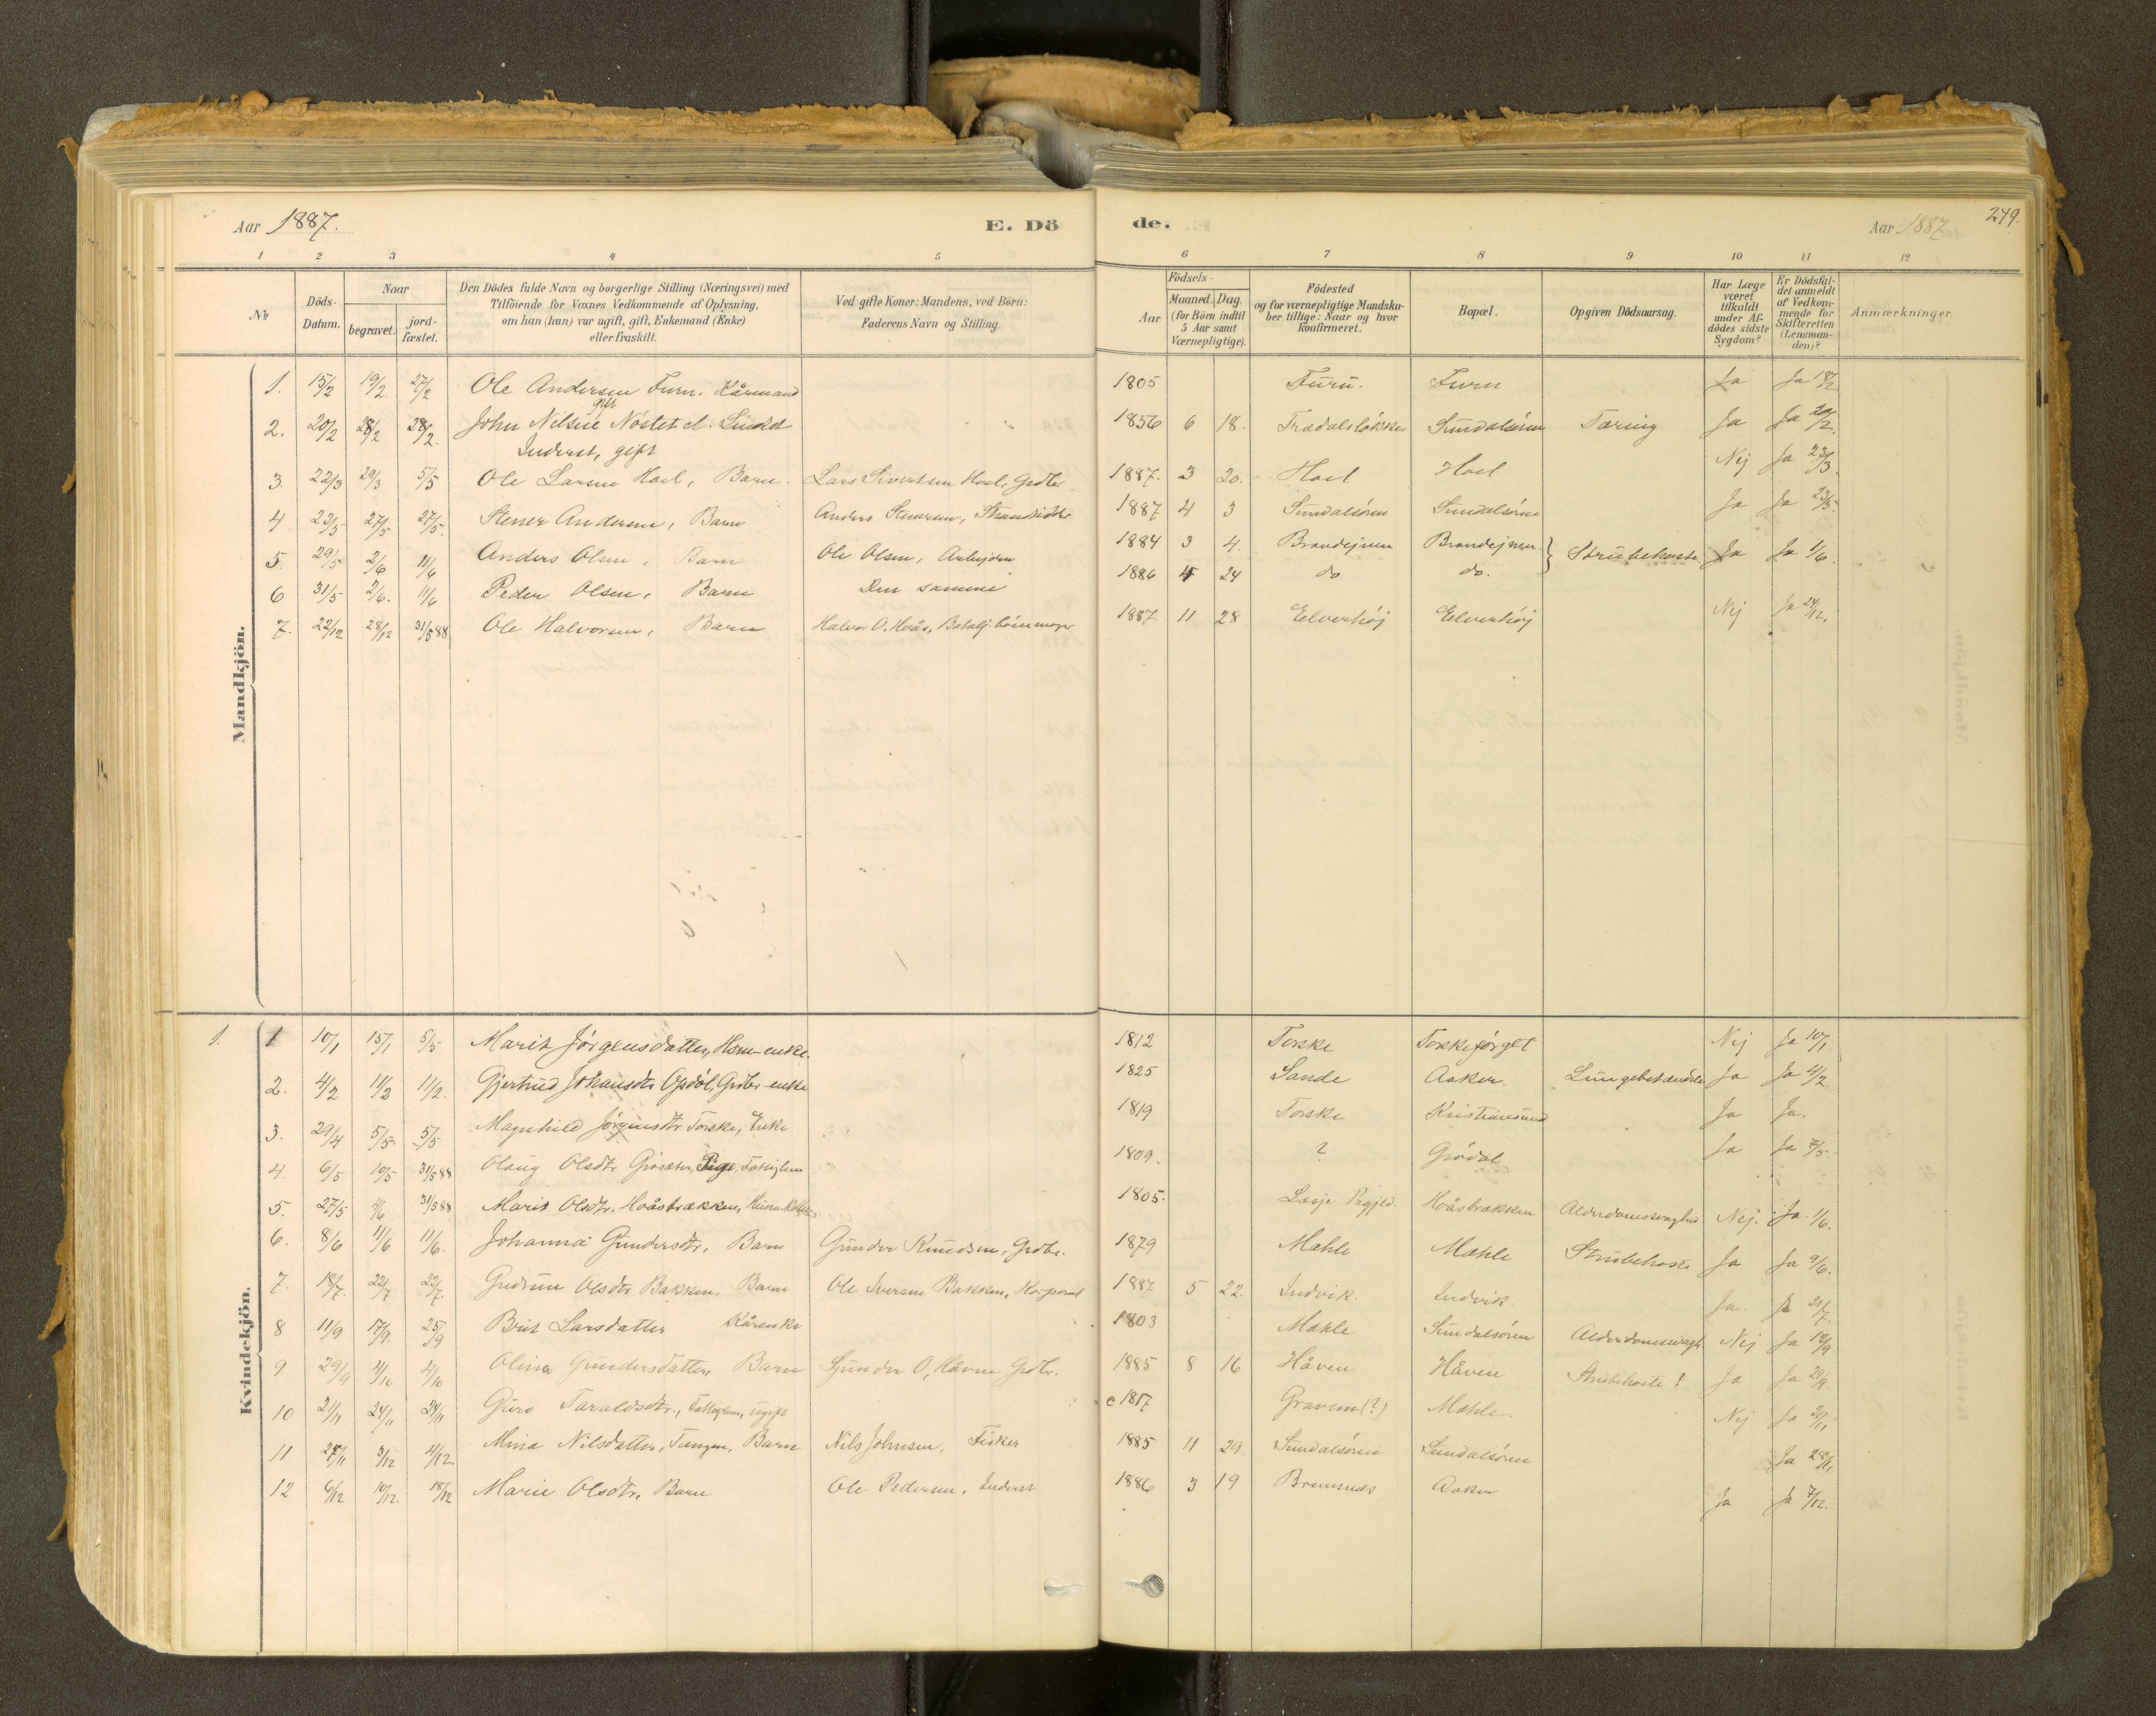 Aar 1887.
E. Dö
de.
Aar 1887
249.
1 2 3 4 5 6 7 8 9 10 11 12
No
Döds-Datum.
Naar
begravet.
jord-fæstet.
Den Dödes fulde Navn og borgerlige Stilling (Næringsvei) med
Tilföiende for Voxnes Vedkommende af Oplysning,
om han (hun) var ugift, gift, Enkemand (Enke)
eller fraskilt.
Ved gifte Koner: Mandens, ved Börn:
Faderens Navn og Stilling.
Födsels-
Aar
Maaned. Dag.
(for Börn indtil
5 Aar samt
Værnepligtige).
Födested
og for værnepligtige Mandska-
ber tillige: Naar og hvor
konfirmeret.
Bopæl.
Opgiven Dödsaarsag.
Har Læge
været
tilkaldt
under Af-
dödes sidste
Sygdom?
Er Dödsfal-
det anmeldt
af Vedkom-
mende for
Skifteretten
(Lensman-
den)?
Anmærkninger.
Mandkjön.
1. 15/2 19/2 27/2 Ole Andersen Furu. Kårmand 1805 Furu. Furu Ja Ja 18/2
gift
2. 20/2 28/2 28/2 John Nilsen Nöstet el. 1856 6 18. Trædalsløkken Sundalsören Tæring Ja Ja 20/2.
Inderst, gift
3. 22/3 29/3 5/5 Ole Larsen Hoel, Barn. Lars Sivertsen Hoel, Grdbr. 1887. 3 20. Hoel Hoel Nej Ja 23/3.
4 23/5 27/5 27/5. Stener Andersen, Barn Anders Stenersen, Strandsidder 1887 4 3 Sundalsören Sundalsören Ja Ja 23/5.
5. 29/5 2/6 11/6 Anders Olsen, Barn Ole Olsen, Arbejder 1884 3 4. Brandejnen Brandejnen } Strubehoste Ja Ja 1/6.
6 31/5 2/6. 11/6 Peder Olsen, Barn Den samme 1886 4 24 do do.
7. 22/12 28/12 31/5 88 Ole Halvorsen, Barn Halvor O. Hoås, 1887 11 28 Elverhöj Elverhöj Nej Ja 24/12.
Kvindekjön.
1. 1 10/1 15/1 5/5 Marit Jörgensdatter, Hsm-enke. 1812 Torske Torskejörget Nej Ja 10/1.
2. 4/2 11/2 11/2. Gjertrud Johansdtr Opdöl, Grdbr-enke 1825 Sande Aaker. Lungebetændelse Ja Ja 4/2
3. 29/4 5/5 5/5 Magnhild Jörgensdtr. Torske, Enke 1819 Torske Kristiansund Ja Ja.
4. 6/5 10/5 31/5 88 Olaug Olsdtr. Grösæter, Pige, Fattiglem 1809. ? Grödal Ja Ja 7/5.
5. 27/5 4/6 31/5 88 Marit Olsdtr. Hoåsbrækken, 1805. Lesje Hoåsbrækken Alderdomssvaghed Nej. Ja 1/6.
6. 8/6 11/6 11/6. Johanna Gundersdtr, Barn Gunder Knudsen, Grdbr. 1879 Mæhle Mæhle Strubehoste Ja Ja 9/6.
7. 18/7. 22/7 22/7. Gudrun Olsdtr Bakken, Barn Ole Iversen Bakken, Korporal 1887 5 22. Indvik. Indvik. Ja. Ja 21/7.
8 11/9 17/9. 25/9 Brit Larsdatter Kårenke 1803 Mæhle Sundalsören Alderdomssvagh. Nej Ja 12/9
9 29/9 4/10 4/10 Olina Gundersdatter, Barn Gunder O. Håven Grdbr. 1885 8 16 Håven Håven Strubehoste! Ja Ja 29/9.
10 21/11 24/11 24/11 Guro Taraldsdtr., Fattiglem, ugift c 1817 Gravem (?) Mæhle. Nej Ja 21/11
11. 27/11 3/12 4/12 Mina Nilsdatter, Tangen, Barn Nils Johnsen, Fisker 1885 11 29. Sundalsören Sundalsören Ja 28/11
12 6/12 10/12. 18/12 Marie Olsdtr, Barn Ole Pedersen, Inderst 1886 3 19 Bremsnes Aaker Ja Ja 7/12.